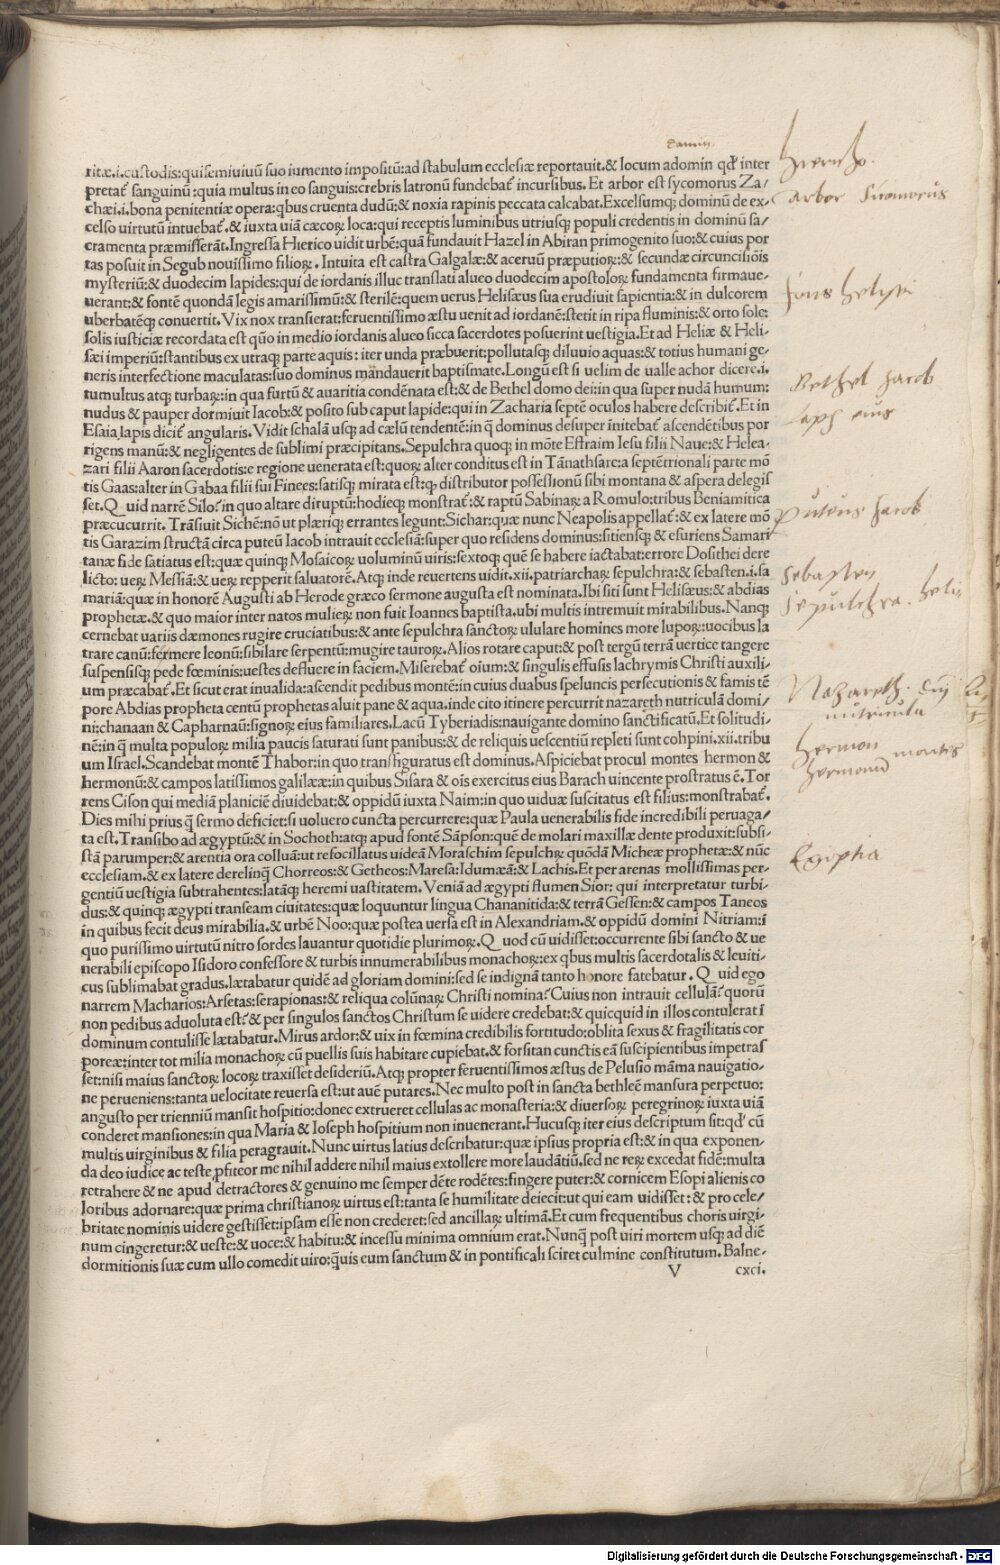 ritæ.i.custodis:qui semiuiuū suo iumento impositū:ad stabulum ecclesiæ reportauit.& locum adomin qđ inter
pretat̃ sanguinū:quia multus in eo sanguis:crebris latronū fundebat̃ incursibus. Et arbor est sycomorus Za/
chæi.i.bona penitentiæ opera:qbus cruenta dudū:& noxia rapinis peccata calcabat.Excelsumq; dominū de ex/
celso uirtutū intuebat̃.& iuxta uiā cæcoꝝ loca:qui receptis luminibus utriusq; populi credentis in dominū sa/
cramenta præmisserāt.Ingressa Hierico uidit urbē:quā fundauit Hazel in Abiran primogenito suo:& cuius por
tas posuit in Segub nouissimo filioꝝ. Intuita est castra Galgalæ:& aceruū præputioꝝ:& secundæ circuncisiōis
mysteriū:& duodecim lapides:qui de iordanis illuc translati alueo duodecim apostoloꝝ fundamenta firmaue/
uerant:& fontē quondā legis amarissimū:& sterilē:quem uerus Helisæus sua erudiuit sapientia:& in dulcorem
uberbatēq; conuertit.Vix nox transierat:feruentissimo æstu uenit ad iordanē:stetit in ripa fluminis:& orto sole:
solis iusticiæ recordata est quō in medio iordanis alueo sicca sacerdotes posuerint uestigia.Et ad Heliæ & Heli-
sæi imperiū:stantibus ex utraq; parte aquis: iter unda præbuerit:pollutasq; diluuio aquas:& totius humani ge-
neris interfectione maculatas:suo dominus mādauerit baptismate.Longū est si uelim de ualle achor dicere.i.
tumultus atq; turbaꝝ:in qua furtū & auaritia condēnata est:& de Bethel domo dei:in qua super nudā humum:
nudus & pauper dormiuit Iacob:& posito sub caput lapide:qui in Zacharia septē oculos habere describit̃.Et in
Esaia lapis dicit̃ angularis. Vidit schalā usq; ad cælū tendentē:in q̄ dominus desuper īnitebat̃ ascendētibus por
rigens manū:& negligentes de sublimi præcipitans.Sepulchra quoq; in mōte Effraim Iesu filii Naue:& Helea-
zari filii Aaron sacerdotis:e regione uenerata est:quoꝝ alter conditus est in Tānathsare:a septētrionali parte mō
tis Gaas:alter in Gabaa filii sui Finees:satisq; mirata est:q; distributor possessionū sibi montana & aspera delegis
set.Quid narrē Silo?in quo altare diruptū:hodieq; monstrat̃:& raptū Sabinaꝝ a Romulo:tribus Beniamitica
præcucurrit. Trāsiuit Sichē:nō ut plæriq; errantes legunt:Sichar:quæ nunc Neapolis appellat̃:& ex latere mō
tis Garazim structā circa puteū Iacob intrauit ecclesiā:super quo residens dominus:sitiensq; & esuriens Samari
tanæ fide satiatus est:quæ quinq; Mosaicoꝝ uoluminū uiris:sextoq; quē se habere iactabat:errore Dosithei dere
licto: ueꝝ Messiā:& ueꝝ repperit saluatorē.Atq; inde reuertens uidit.xii.patriarchaꝝ sepulchra:& sebasten.i.sa
mariā:quæ in honorē Augusti ab Herode græco sermone augusta est nominata.Ibi siti sunt Helisæus:& abdias
prophetæ.& quo maior inter natos mulieꝝ non fuit Ioannes baptista.ubi multis intremuit mirabilibus. Nanq;
cernebat uariis dæmones rugire cruciatibus:& ante sepulchra sanctoꝝ ululare homines more lupoꝝ:uocibus la
trare canū:fermere leonū:sibilare serpentū:mugire tauroꝝ.Alios rotare caput:& post tergū terrā uertice tangere
suspensisq; pede fœminis:uestes defluere in faciem.Miserebat̃ oium:& singulis effusis lachrymis Christi auxili-
um præcabat̃.Et sicut erat inualida:ascendit pedibus montē:in cuius duabus speluncis persecutionis & famis tē
pore Abdias propheta centū prophetas aluit pane & aqua.inde cito itinere percurrit nazareth nutriculā domi/
ni:chanaan & Capharnaū:signoꝝ eius familiares.Lacū Tyberiadis:nauigante domino sanctificatū.Et solitudi-
nē:in q̄ multa populoꝝ milia paucis saturati sunt panibus:& de reliquis uescentiū repleti sunt cohpini.xii.tribu
um Israel.Scandebat montē Thabor:in quo transfiguratus est dominus.Aspiciebat procul montes hermon &
hermonū:& campos latissimos galilææ:in quibus Sisara & oīs exercitus eius Barach uincente prostratus ē.Tor
rens Cison qui mediā planiciē diuidebat:& oppidū iuxta Naim:in quo uiduæ suscitatus est filius:monstrabat̃.
Dies mihi prius q̄ sermo deficiet:si uoluero cuncta percurrere:quæ Paula uenerabilis fide incredibili peruaga/
ta est.Transibo ad ægyptū:& in Sochoth:atq; apud fontē Sāpson:quē de molari maxillæ dente produxit:subsi-
stā parumper:& arentia ora colluā:ut refocillatus uideā Moraschim sepulchꝝ quōdā Micheæ prophetæ:& nūc
ecclesiam.& ex latere derelinq̄ Chorreos:& Getheos:Maresa:Idumæā:& Lachis.Et per arenas mollissimas per-
gentiū uestigia subtrahentes:latāq; heremi uastitatem. Veniā ad ægypti flumen Sior: qui interpretatur turbi-
dus:& quinq; ægypti transeam ciuitates:quæ loquuntur lingua Chananitida:& terrā Gessen:& campos Taneos
in quibus fecit deus mirabilia.& urbē Noo:quæ postea uersa est in Alexandriam.& oppidū domini Nitriam:ī
quo purissimo uirtutū nitro sordes lauantur quotidie plurimoꝝ.Quod cū uidisset:occurrente sibi sancto & ue
nerabili episcopo Isidoro confessore & turbis innumerabilibus monachoꝝ:ex qbus multis sacerdotalis & leuiti-
cus sublimabat gradus.lætabatur quidē ad gloriam domini:sed se indignā tanto honore fatebatur. Quid ego
narrem Macharios:Arsetas:serapionas:& reliqua colūnaꝝ Christi nomina?Cuius non intrauit cellulā?quorū
non pedibus aduoluta est?& per singulos sanctos Christum se uidere credebat:& quicquid in illos contulerat ī
dominum contulisse lætabatur.Mirus ardor:& uix in fœmina credibilis fortitudo:oblita sexus & fragilitatis cor
poreæ:inter tot milia monachoꝝ cū puellis suis habitare cupiebat.& forsitan cunctis eā suscipientibus impetras
set:nisi maius sanctoꝝ locoꝝ traxisset desideriū.Atq; propter feruentissimos æstus de Pelusio māma nauigatio-
ne perueniens:tanta uelocitate reuersa est:ut auē putares.Nec multo post in sancta bethleē mansura perpetuo:
angusto per trienniū mansit hospitio:donec extrueret cellulas ac monasteria:& diuersoꝝ peregrinoꝝ iuxta uiā
conderet mansiones:in qua Maria & Ioseph hospitium non inuenerant.Hucusq; iter eius descriptum sit:qđ cū
multis uirginibus & filia peragrauit.Nunc uirtus latius describatur:quæ ipsius propria est:& in qua exponen/
da deo iudice ac teste ꝓfiteor me nihil addere nihil maius extollere more laudātiū.sed ne reꝝ excedat fidē:multa
retrahere & ne apud detractores & genuino me semper dēte rodētes:fingere puter:& cornicem Esopi alienis co
loribus adornare:quæ prima christianoꝝ uirtus est:tanta se humilitate deiecit:ut qui eam uidisset:& pro cele/
britate nominis uidere gestisset:ipsam esse non crederet:sed ancillaꝝ ultimā.Et cum frequentibus choris uirgi/
num cingeretur:& ueste:& uoce:& habitu:& incessu minima omnium erat.Nunq̄ post uiri mortem usq; ad diē
dormitionis suæ cum ullo comedit uiro:q̄uis eum sanctum & in pontificali sciret culmine constitutum.Balne-
V cxci.
arbor Sicomorus
fons helysei
Bethel Jacob
eius
puteus Jacob
Sebasten
Sepulchra
Nazareth
nutricula
hermon montes
Egiptha
Digitalisierung gefördert durch die Deutsche Forschungsgemeinschaft - DFG